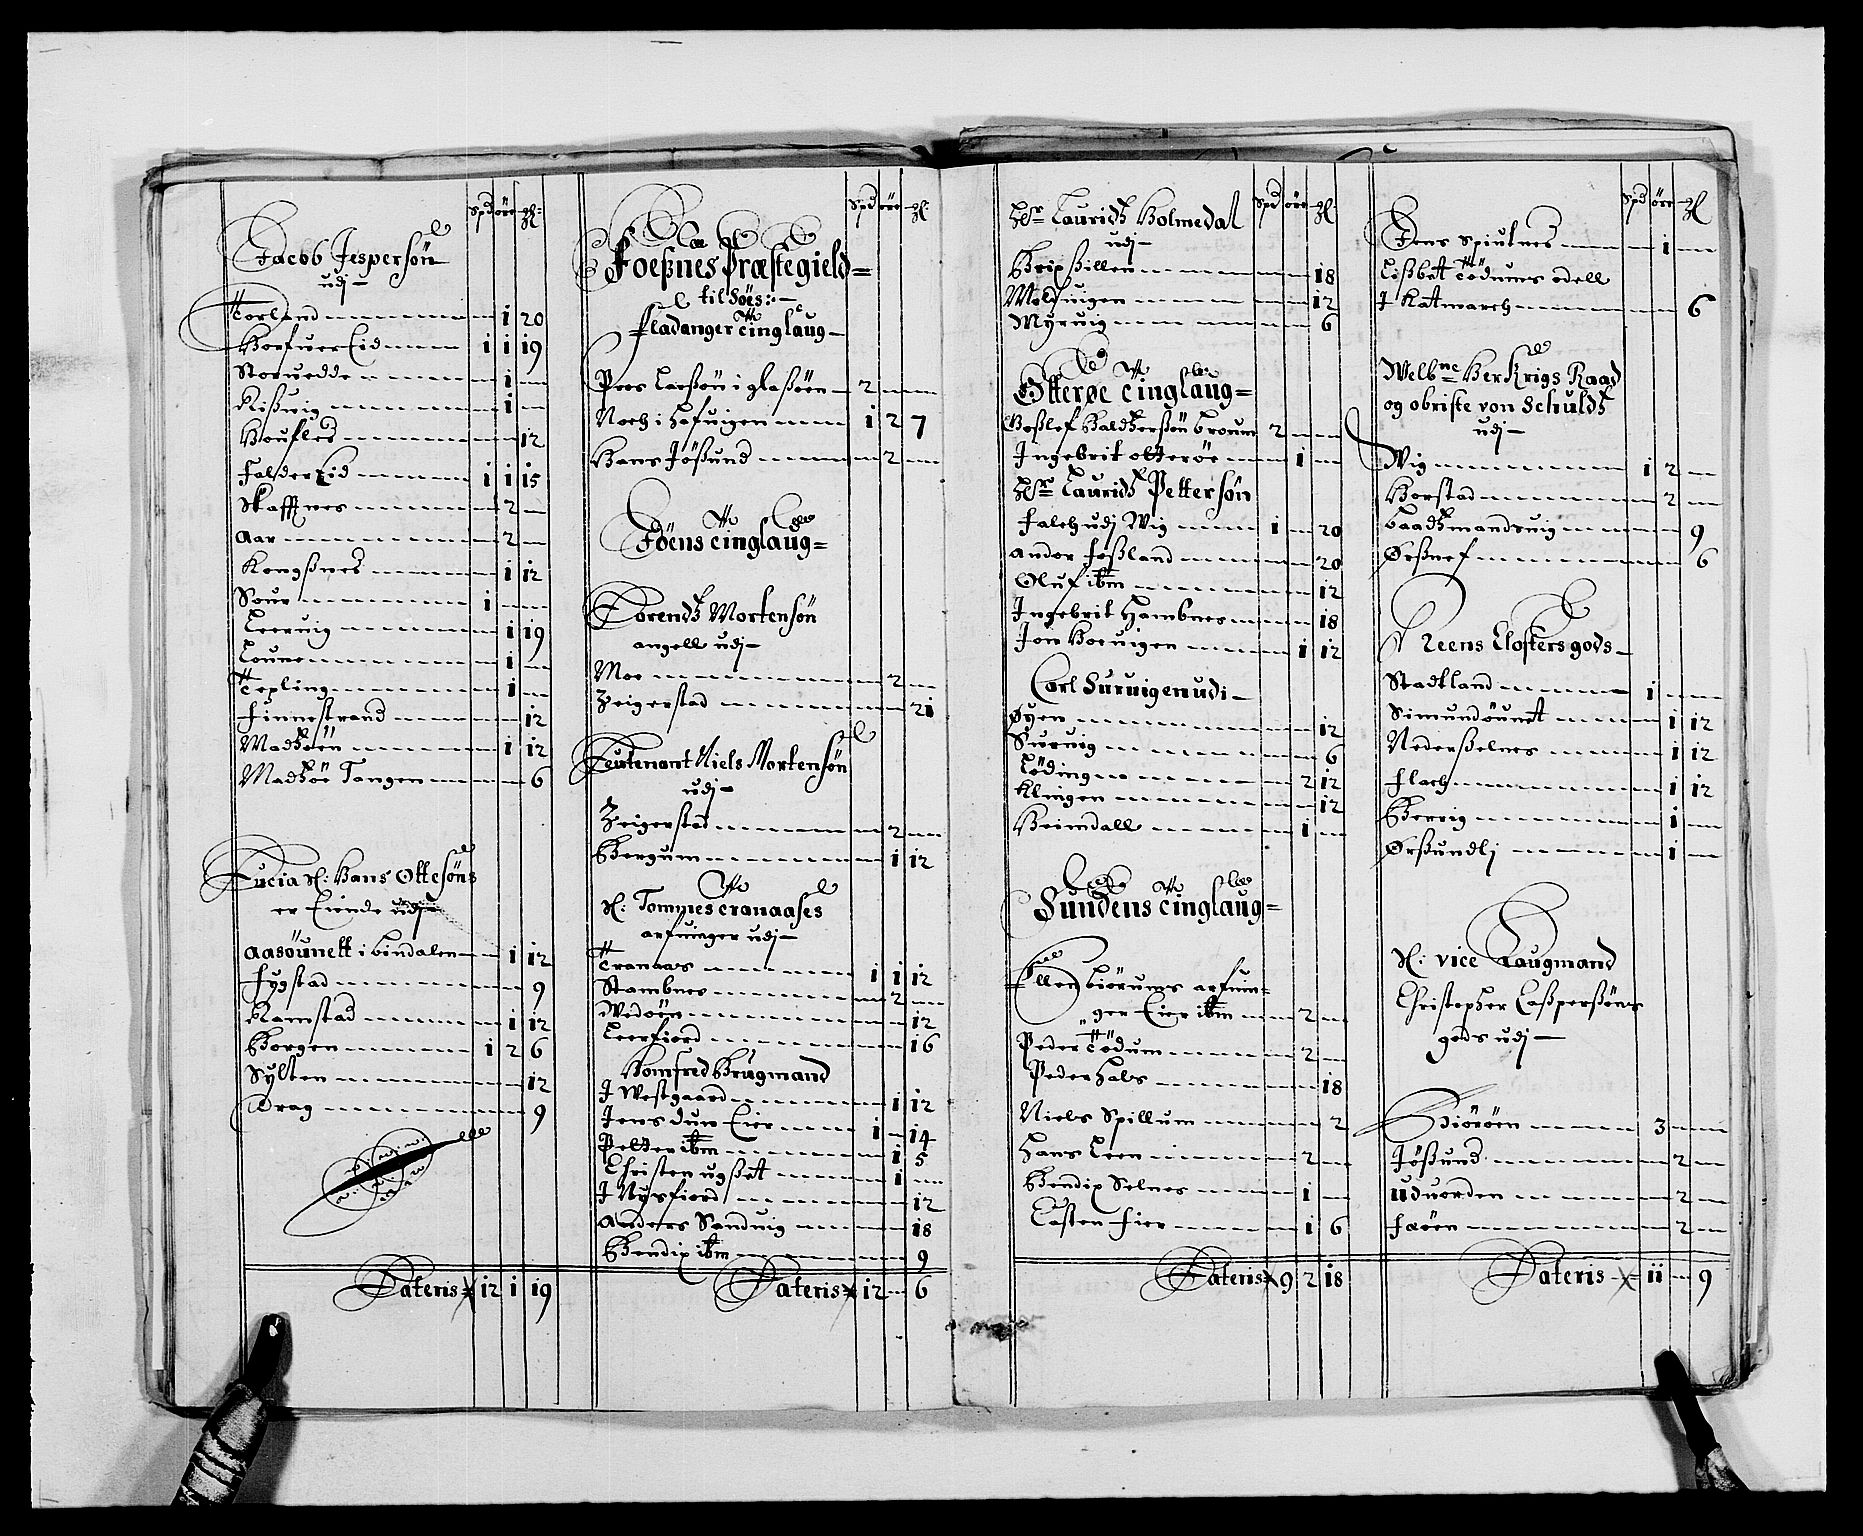 Spd øre ₰l:
Jacob Jespersøn
udj —
Torland — 1 20
Horfuer Eid — 1 1 19
Storuedde — 1 —
Kißwig — 1 —
Houfled — 12
Falder Eid — 1 1 15
Skaffnes — 2 —
Aar — 2 —
Kongßnes — 1 12
Sour — 1 —
Leeruig — 1 19
Loune — 1 —
Tepling — 1 —
Finnestrand — 12
Madhöen — 1 12
Madhöe Tangen — 6
Lucia S: Hans Ottesøns
er Eiende udj —
Aasöunett i bindalen — 1 12
Fygstad — 9
Ramstad — 1 12
Horgen — 1 2 6
Sylten — 12
Drag — 9
Lateris 12 1 19
Spd øre ₰l
Foeßnes Præstegield =
til Söes: —
Fladanger Tinglaug —
Peos Larßön i glaßöen — 2 —
Noch i Hafuigen — 1 2 7
Hans Jößund — 2 —
Föens Tinglaug =
Lorendtz Mortensøn
angell udj —
Moe — 2 —
Zeigerstad — 21
Leutenant Niels Mortensøn
udj —
Zeigerstad — 2 —
Bergum — 1 12
S: Tommes Tranaases
arfuinger udj —
Tranaas — 1 1 12
Stambnes — 2 —
Wedöen — 12
Leerfiord — 16
Homfred Brugmand
J Westgaard — 1 12
Jens dun Eier — 1 — 14
Pelder ibm — 1 5
Christen ugßett — 1 —
J Nysfiord — 12
Anders Sanduig — 18
Bendix ibm — 9
Lateris 12 — 6
Spd øre ₰l
Hr Lauridtz Holmedal
udj —
— 18
Molduigen — 12
Myruig — 6
Otterøe Tinglaug =
Boßlef Baltzerßön broum 2 —
Ingebrit otterøe — 1 —
Hr Lauridtz Pettersøn
Falch udj Wig — 1 — 20
Andor Foßland — 20
Oluf ibm — 12
Ingebrit Hambnes — 18
Jon Hoeuigen — 1 12
Carl Suruigen udi —
Øyen — 12
Suruig — 6
Löding — 2 12
Klingen — 12
Heimdall — 1 —
Sundens Tinglaug =
Ellen biörums arfuin=
ger Eier ibm — 2 —
Peder Tödum — 2 —
Peder Hals — 18
Niels Spillum — 2
Hans Leen — 2 —
Bendix Selnes — 1 —
Casten Fier — 1 6
Lateris 9 2 18
Spd øre ₰l
Jens Spiutnes — 1 —
Lisbett Tödums odell
J Kattmarch — 6
Welbne Her Krigs Raad
og obriste von Schuldtz
udj —
Wig — 1 2 —
Horstad — 2 —
baadtzmandsuig — 9
Ørßnef — 6
Reens Closters gods —
Stadtland — 1 —
Simundöunet — 1 12
Nederßelnes — 1 12
Flach — 1 12
Berrig — 1 —
Ørßundlj — 1 —
S: vice Laugmand
Christopher Caßperßöns
gods udj —
Biöröen — 3 —
Jößund — 2 —
Uduorden — 2 —
Faröen — 2 —
Lateris — 11 — 9